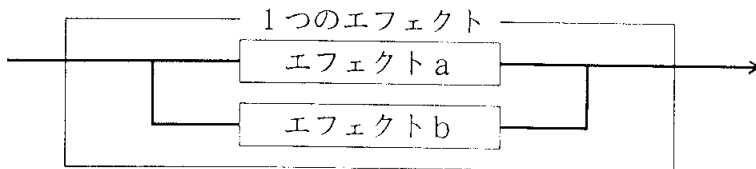 1つのエフェクト
エフェクトa
エフェクトb